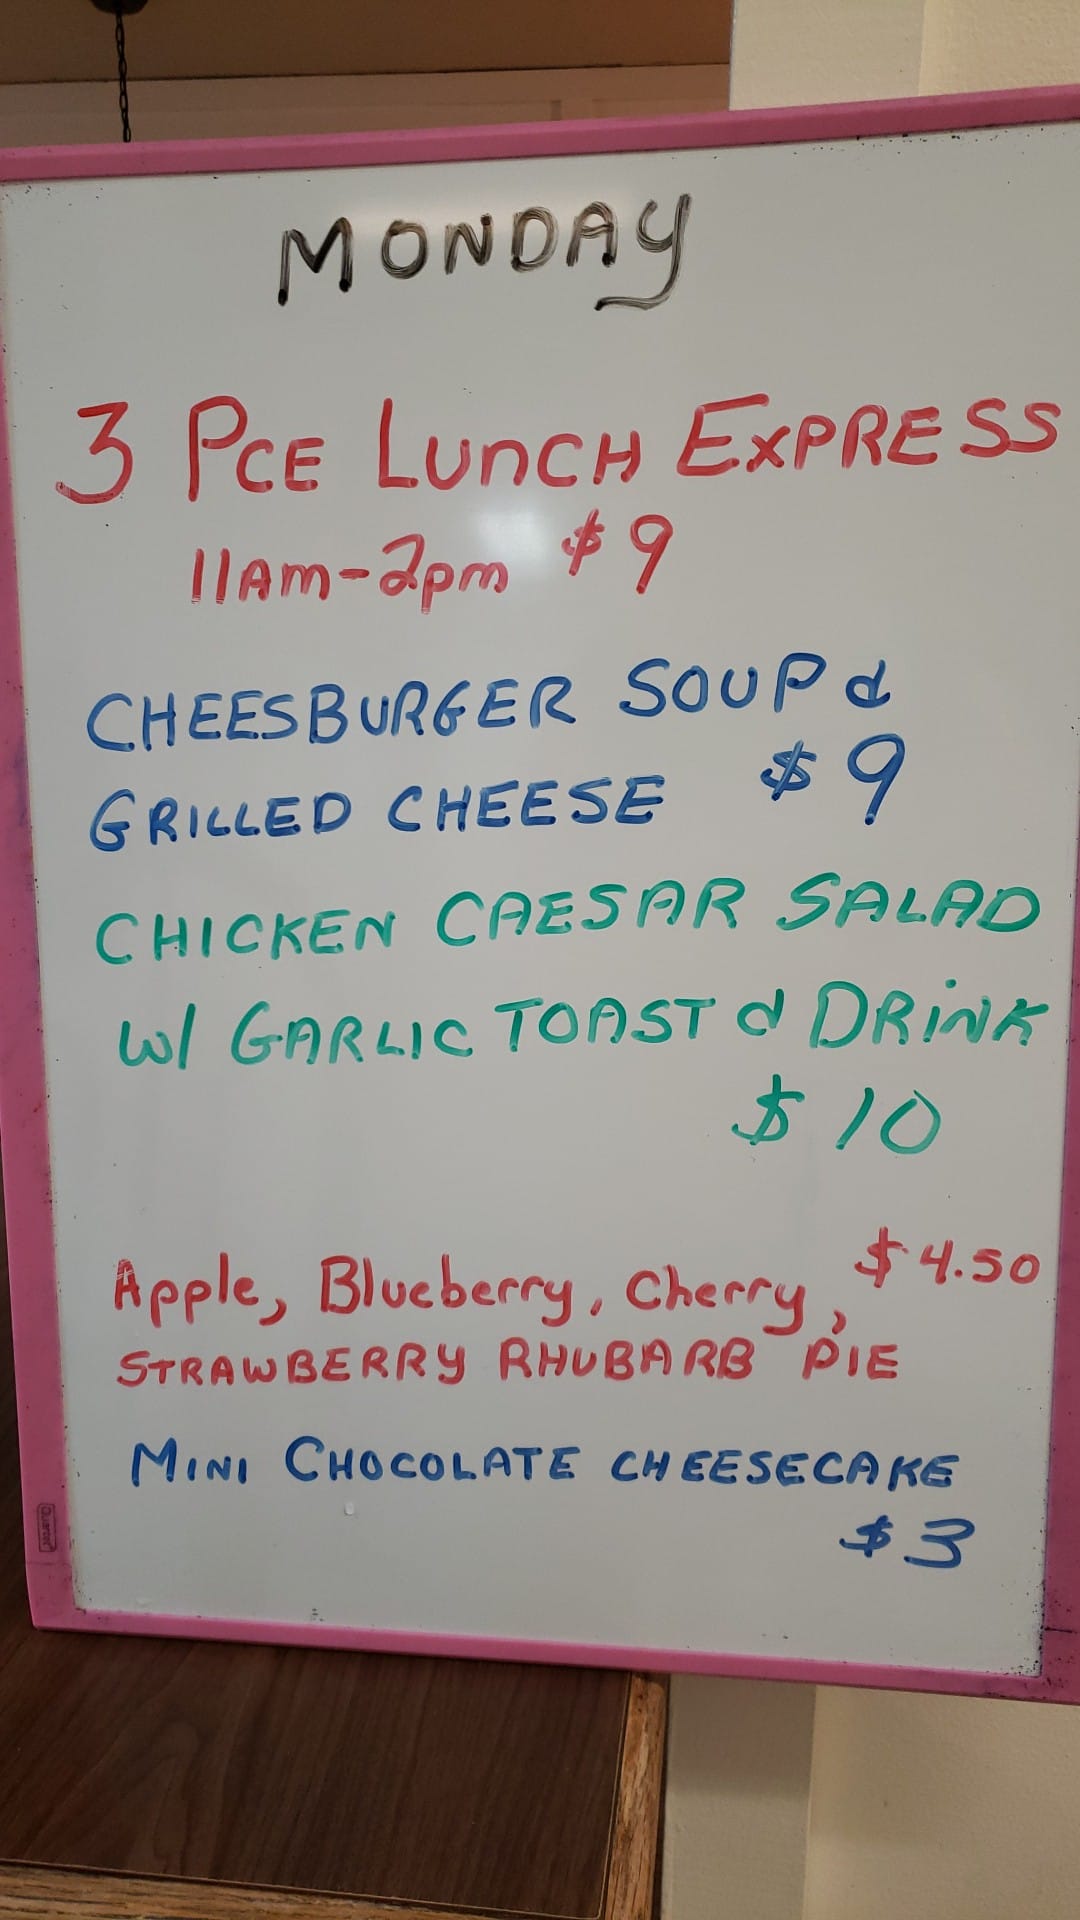 MONDAY
3 PCE LUNCH EXPRESS
11AM-2pm $9
CHEESBURGER SOUP &
GRILLED CHEESE $9
CHICKEN CAESAR SALAD
W/ GARLIC TOAST & DRINK
$10
Apple, Blueberry, Cherry, $4.50
STRAWBERRY RHUBARB PIE
MINI CHOCOLATE CHEESECAKE
$3
Quartet